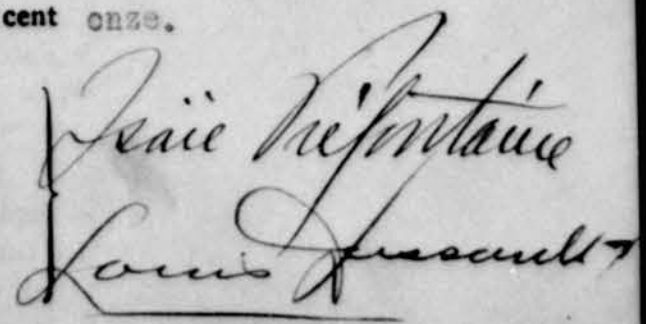 cent onze.
Isaïe Préfontaine
Louis Dussault